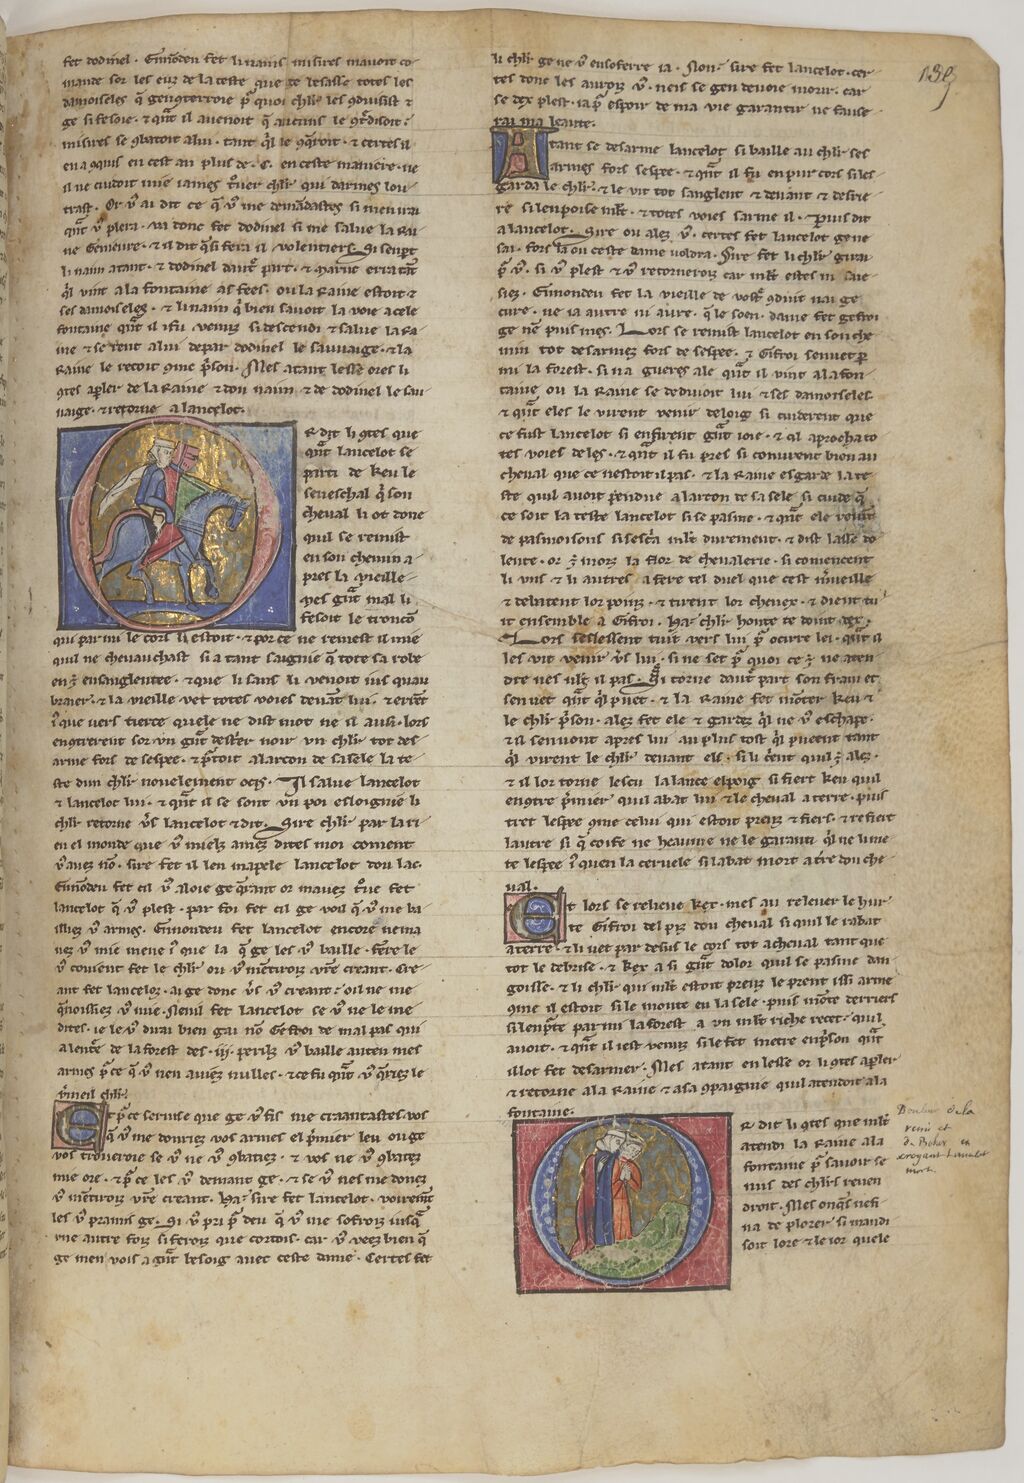 fet dodinel. Einsdeu fet li nains misires mauoit co
mande sor les eux de la teste que ge lesasse totes les
damoiseles q̄ genqterroie p̄ quoi chl'r les 9duisist ⁊
ge si fesoie. ⁊ q̄nt il auenoit q̄ aucuns le 9tredisoit.
misires se 9batoit a lui. tant q̄l le 9q̄roit. ⁊ certes il
en a 9quis en cest an plus de .c. en ceste maniere. ne
il ne cuidoit mie iames t'uer chl'r qui darmes lou
trast. Or v9 ai dit ce q̄ v9 me demādastes si men irai
q̄nt v9 plera. va donc fet dodinel si me salue la Rai
ne Genieure. ⁊ il dit q̄ si fera il volentiers. Si sen p̄t
li nain atant. ⁊ dodinel dautre part. ⁊
q̄l vint a la fontaine as fees. ou la Raine estoit ⁊
ses damoiseles. ⁊ li nain q̄ bien sauoit la voie a cele
fontaine q̄nt il i fu venuz si descendi ⁊ salue la Ra
ine ⁊ se rent a lui de par dodinel le sauuaige. ⁊ la
Raine le recoit 9me p̄son. Mes atant lesse ores li
9tes a p̄ler de la Raine ⁊ dou nain ⁊ de dodinel le sau
uaige. ⁊ retorne a lancelot.
Or dit li 9tes que
q̄nt lancelot se
parti de Keu le
seneschal q̄ son
cheual li ot done
quil se remist
en son chemin a
pres la vieille
mes ḡnt mal li
fesoit le troncō
qui par mi le cors li estoit. ⁊ por ce ne remest il mie
quil ne cheuauchast si a tant saignie q̄ tote sa robe
en ē ensanglentee. ⁊ que li sans li venoit ius quau
braier. ⁊ la vieille vet totes voies deuāt lui. ⁊ errēt
i que vers tierce quele ne dist mot ne il ausi. lors
en9trerent sor vn ḡnt destrer noir vn chl'r tot des
arme fors de sespee. ⁊ p̄toit a larcon de sa sele la te
ste dun chl'r nouelement ocis. Il salue lancelot
⁊ lancelot lui. ⁊ q̄nt il se sont vn poi esloignie li
chl'r retorne v's lancelot ⁊ dit. Sire chl'r par la ri
en el monde que v9 mielz amez dites moi coment
v9 auez nō. sire fet il len mapele lancelot dou lac.
Einsdeu fet cil v9 aloie ge q̄rant or mauez t'ue fet
lancelot q̄ v9 plest. par foi fet cil ge voil q̄ v9 me ba
illiez v9 armes. Einsdeu fet lancelot encore nema
uez v9 mie mene i que la q̄ ge les v9 baille. fere le
v9 couient fet le chl'r ou v9 mētiroiz vr̄e creant. Cre
ant fet lancelot. ai ge donc v's v9 creant. oil ne me
9noissiez v9 mie. Nenil fet lancelot se v9 ne le me
dites. ie le v9 dirai bien gai nō Geffroi de mal pas qui
a lentre de la forest des .iij. perilz v9 baille auten mes
armes p̄ ce q̄ v9 nen auiez nulles. ⁊ ce fu q̄nt v9 q̄riez le
v'meil chl'r.
Et p̄ ce seruise que ge v9 fis me craantastes vos
q̄ v9 me donriez vos armes el p̄mier leu ou ge
vos troueroie se v9 ne v9 9batiez. ⁊ vos ne v9 9batez
mie ore. ⁊ p̄ ce les v9 demant ge. ⁊ se v9 nes me donez
v9 mētiroiz vr̄e creant. Ha sire fet lancelot. voiremt
les v9 pramis ge. Si v9 pri p̄ deu q̄ v9 me sofroiz iusq̄
une autre foiz si feroiz que cortois. car v9 veez bien q̄
ge men vois a ḡnt besoig auec ceste dame. Certes fet
li chl'r ge ne v9 en soferre ia. Non. sire fet lancelot. cer
tes donc les auroiz v9. neis se gen deuoie morir. car
se dex plest. ia p̄ espoir de ma vie garantir ne fause
rai ma leaute.
Atant se desarme lancelot si baille au chl'r ses
armes fors sespee. ⁊ q̄nt il fu en pur cors si les
garda le chl'r. ⁊ le vit tot sanglent ⁊ deuant ⁊ desrie
re si len poise mlt. ⁊ totes voies sarme il. ⁊ puis dit
a lancelot. Sire ou alez v9. certes fet lancelot ge ne
sai. fors la ou ceste dame voldra. Sire fet li chl'r girai
p̄ v9. si v9 plest ⁊ v9 retorneroiz car mlt estes
siez. Einsdeu fet la vieille de vostre 9duit nai ge
cure. ne ia autre ni aure. q̄ le soen. dame fet gefroi
ge nē puis mes. Lors se remist lancelot en son che
min tot desarmez fors de sespee. ⁊ Gifroi sen vet p̄
mi la forest. si na gueres ale q̄nt il vint a la fon
taine ou la Raine se deduioit lui ⁊ ses damoiseles
⁊ q̄nt eles le virent venir de loig si cuiderent que
ce fust lancelot si en firent ḡnt ioie. ⁊ il aprocha to
tes voies de les. ⁊ q̄nt il fu pres si conurent bien au
cheual que ce nestoit il pas. ⁊ la Raine esgarde la te
ste quil auoit pendue a larcon de sa sele si cuide q̄
ce soit la teste lancelot si se pasme. ⁊ q̄nt ele reuint
de pasmoisons si sescria mlt durement. ⁊ dist lasse do
lente. or ē morz la flor de cheualerie. si comencent
li vns ⁊ li autres a fere tel duel que cest m'ueille
⁊ debatent lor poinz. ⁊ tirent lor cheuex. ⁊ dient tu
it ensemble a Gifroi. Ha chl'r honte te doint dex.
Lors seslessent tuit vers lui p̄ ocirre lei. q̄nt il
les vit venir v's lui. si ne set p̄ quoi ce ē ne aten
dre nes uelt il pas. Si torne dautre part son frain et
sen vet q̄nt q̄l puet. ⁊ la Raine fet mōter Keu ⁊
le chl'r p̄son. alez fet ele ⁊ gardez q̄l ne v9 eschape.
⁊ il sen vont apres lui au plus tost q̄l pueent tant
q̄l virent le chl'r deuant els. si li crient quil ē alez.
⁊ il lor torne lescu la lance el poig si fiert Keu quil
en9tre p̄mier quil abat lui ⁊ le cheual a terre. puis
tret lespee 9me celui qui estoit preuz ⁊ fiers. ⁊ refiert
lautre si q̄ coife ne heaume ne le garanti q̄l ne li me
te lespee i quen la ceruele si labat mort a tre dou che
ual.
Et lors se relieue Kex. mes au releuer le hur
te Gifroi del piz dou cheual si quil le rabat
a terre. ⁊ li vet par desus le cors tot a cheual tant que
tot le debrise. ⁊ Kex a si ḡnt dolor quil se pasme dan
goisse. ⁊ li chl'r qui mlt estoit preuz le prent issi arme
9me il estoit si le monte en la sele. puis mōte derriers
si len p̄te par mi la forest a vn mlt riche recet. quil
auoit. ⁊ q̄nt il i est venuz si le fet metre en p̄son q̄nt
il lot fet desarmer. Mes atant en lesse or li 9tes a p̄ler
⁊ retorne a la Raine ⁊ a sa 9paignie quil atendoit a la
fontaine.
Or dit li 9tes que mlt
atendi la Raine a la
fontaine p̄ sauoir se
nus des chl'rs reuen
droit. Mes onq̄s ne fi
na de plorer si maudi
soit lore ⁊ le ior quele
Douleur de la
reine et
de Bohor en
croyant Lancelot
mort.